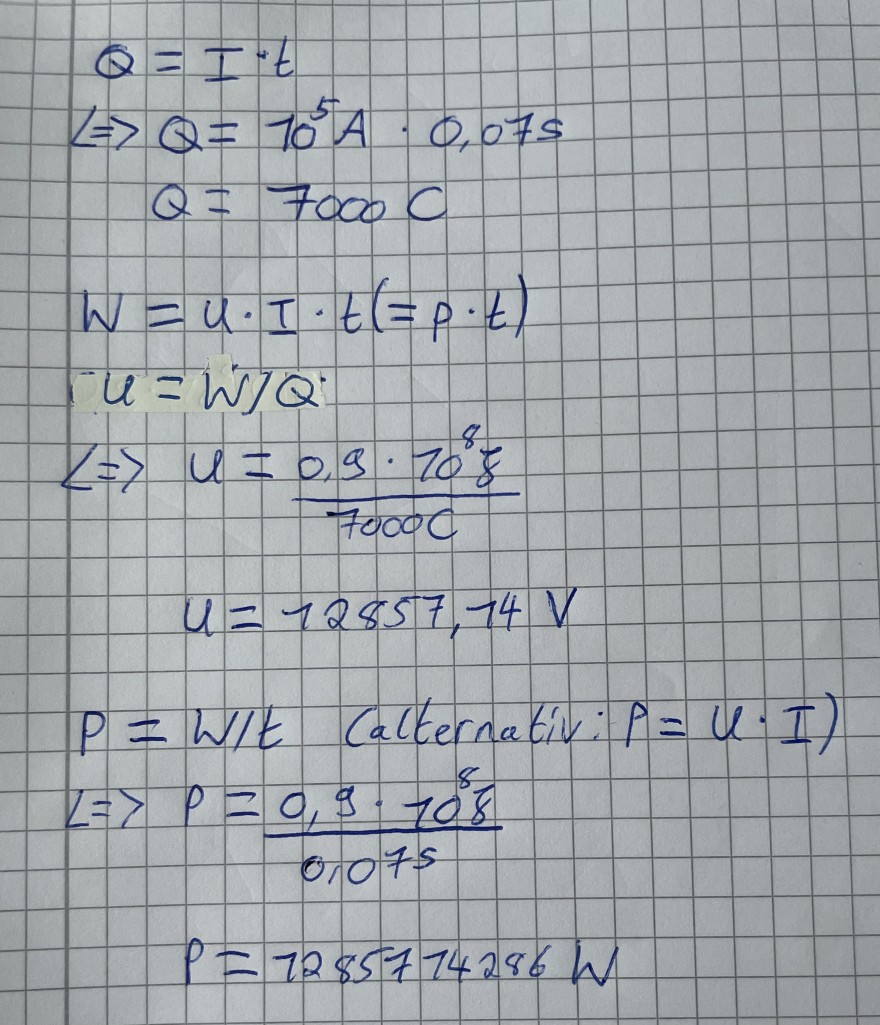 Q = I · t
<=> Q = 10⁵ A · 0,07s
Q = 7000 C
W = U · I · t (= p · t)
U = W/Q
<=> U = 0,9 · 10⁸ J
7000C
U = 12857,14 V
P = W/t (alternativ: P = U · I)
<=> P = 0,9 · 10⁸ J
0,07s
P = 1285714286 W